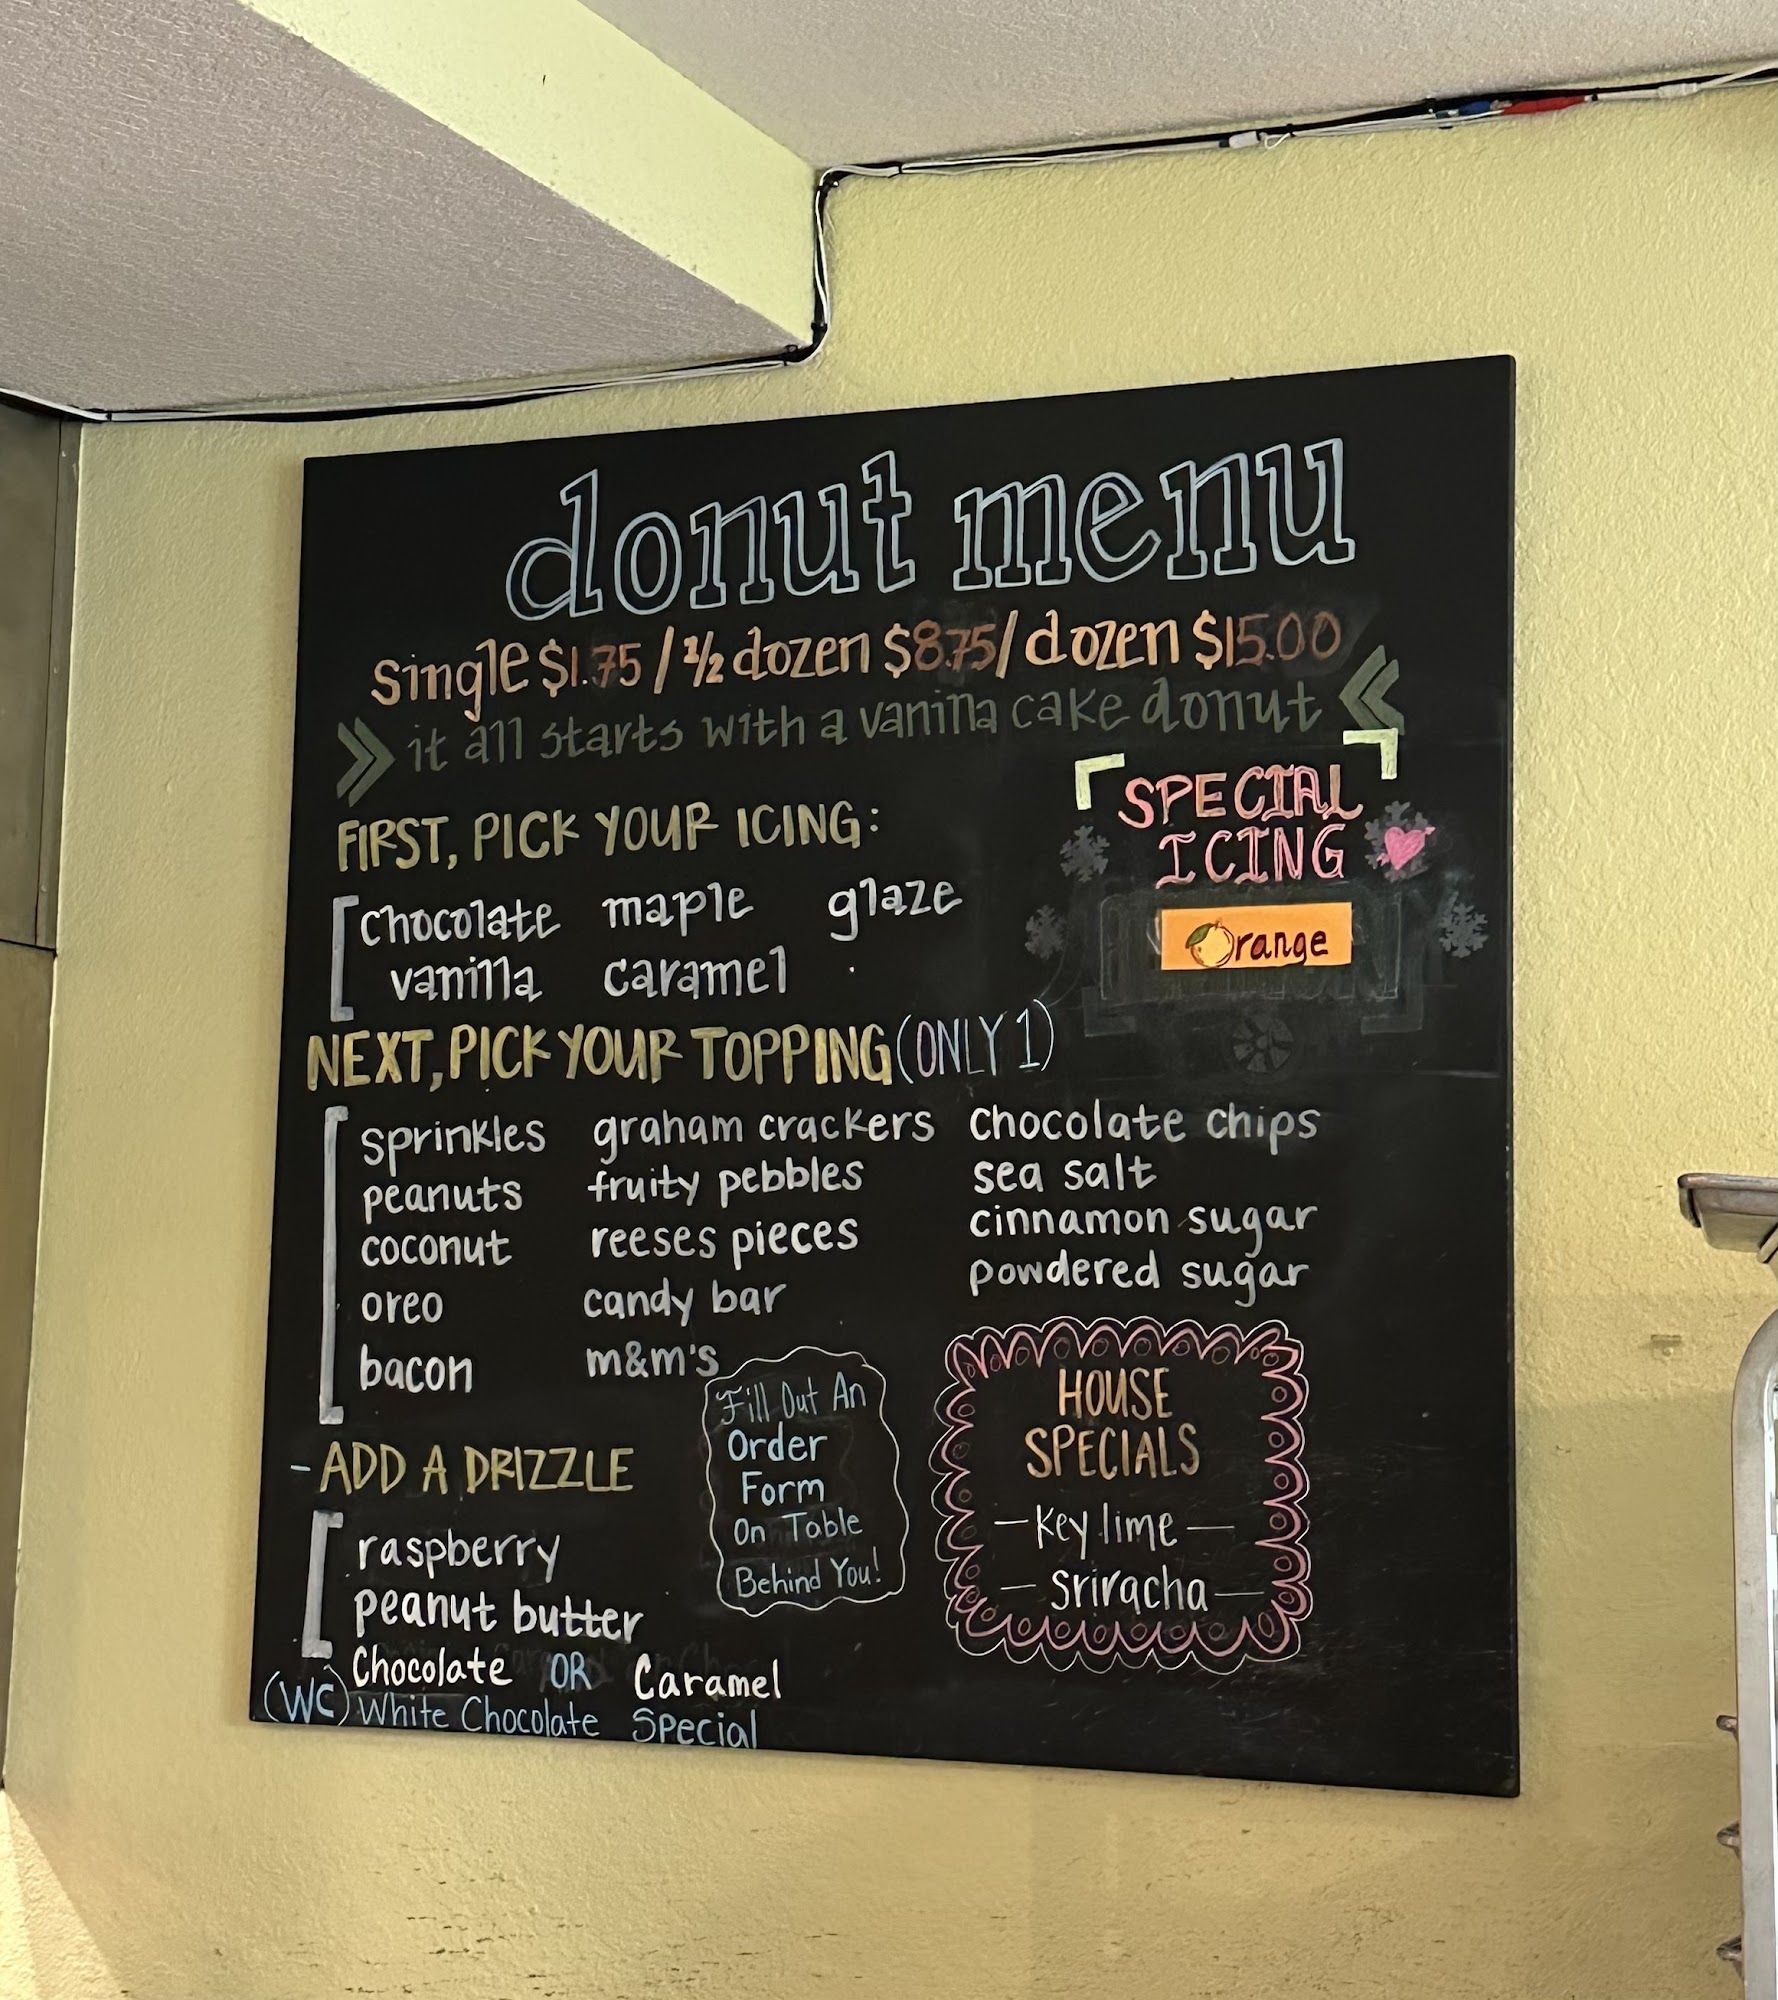 donut menu
single $1.75 / 1/2 dozen $8.75 / dozen $15.00
it all starts with a vanilla cake donut
SPECIAL
ICING
Orange
FIRST, PICK YOUR ICING:
chocolate maple glaze
vanilla caramel
NEXT, PICK YOUR TOPPING (ONLY 1)
sprinkles graham crackers chocolate chips
peanuts fruity pebbles sea salt
coconut reeses pieces cinnamon sugar
oreo candy bar powdered sugar
bacon m&m's
Fill Out An
Order
Form
On Table
Behind You!
HOUSE
SPECIALS
- Key lime -
- Sriracha -
- ADD A DRIZZLE
raspberry
peanut butter
Chocolate OR Caramel
(WC) White Chocolate Special